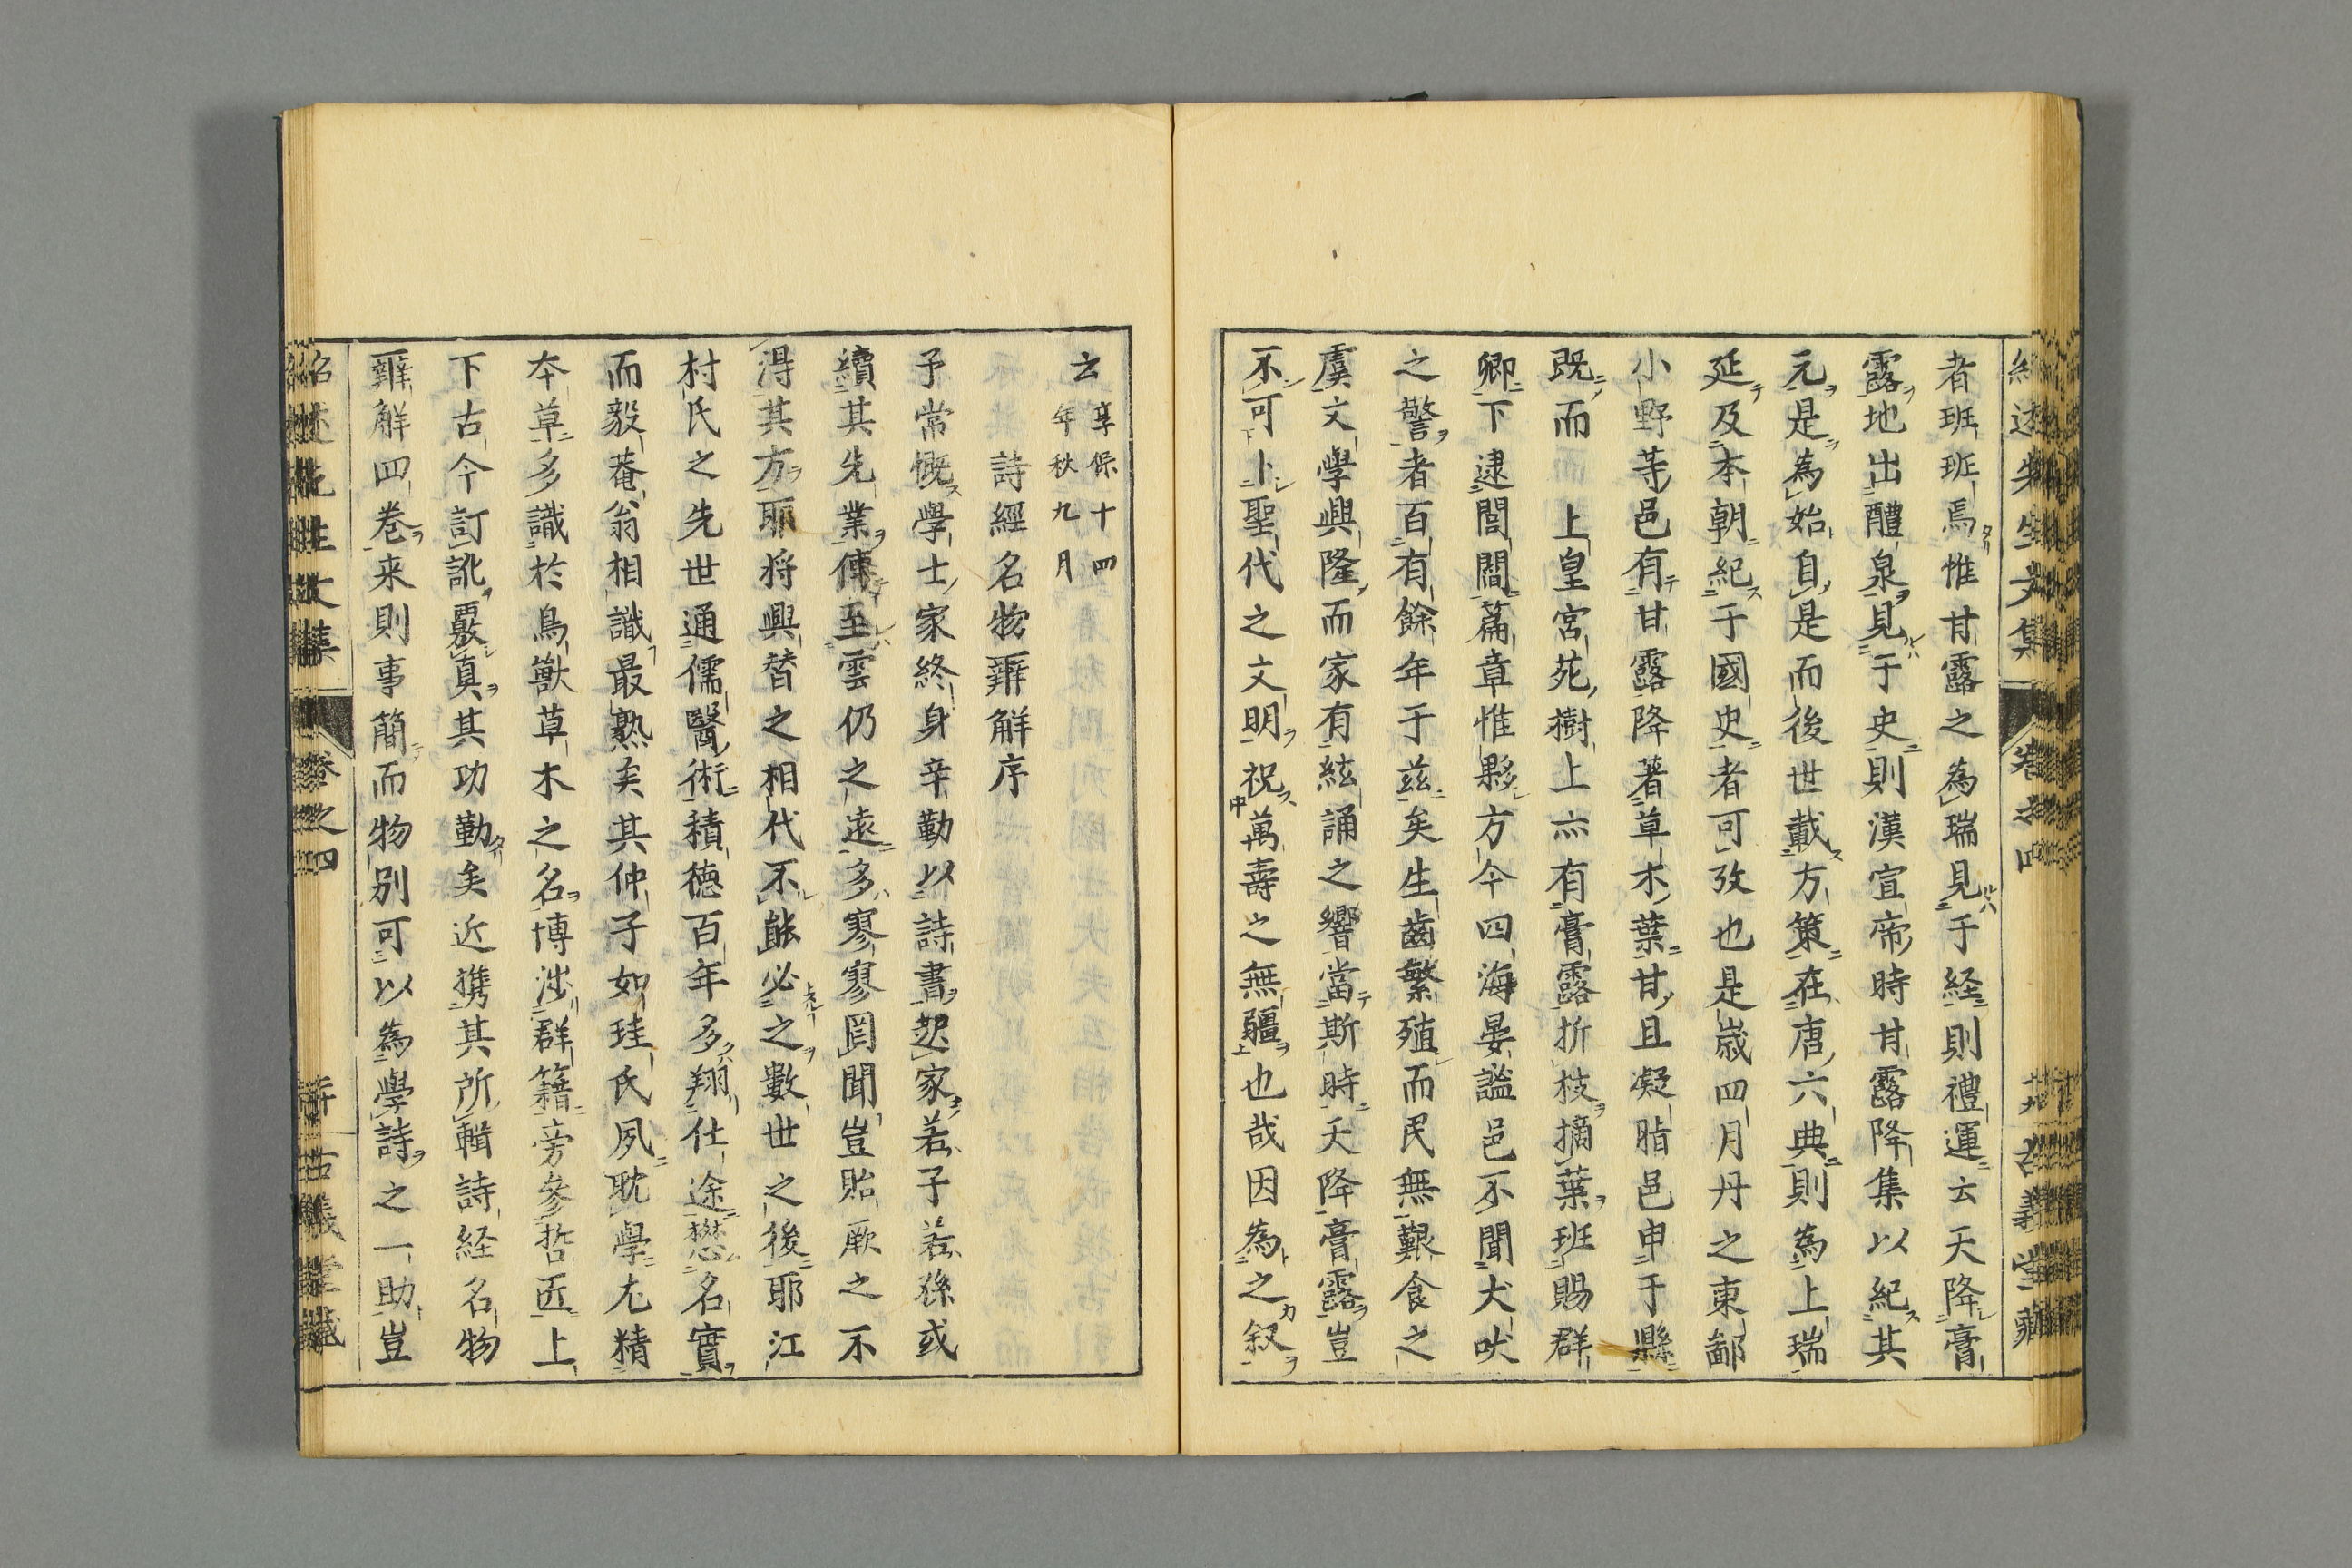 者班班焉惟甘露之為瑞見于経則禮運云天降膏
露地出醴泉見于史則漢宣帝時甘露降集以紀其
元是為始自是而後世載方策在唐六典則為上瑞
延及本朝紀于國史者可攷也是歳四月丹之東鄙
小野等邑有甘露降著草木葉甘且凝脂邑申于縣
既而上皇宮苑樹上亦有膏露折枝摘葉班賜群
卿下逮閭閻篇章惟夥方今四海晏謐邑不聞犬吠
之警者百有餘年于兹矣生齒繁殖而民無艱食之
虞文學興隆而家有絃誦之響當斯時天降膏露豈
不可卜聖代之文明祝萬壽之無疆也哉因為之叙
云享保十四年秋九月
詩經名物辨解序
予常慨學士家終身辛勤以詩書起家若子若孫或
續其先業傳至雲仍之遠多寥寥罔聞豈貽厥之不
得其方耶将興替之相代不能必之數世之後耶江
村氏之先世通儒醫術積徳百年多翔仕途懋名實
而毅菴翁相識最熟矣其仲子如珪氏夙耽學尤精
本草多識於鳥獣草木之名博渉群籍旁參哲匠上
下古今訂訛覈真其功勤矣近携其所輯詩経名物
辨解四巻来則事簡而物別可以為學詩之一助豈
紹述先生文集 巻之四 古義堂藏